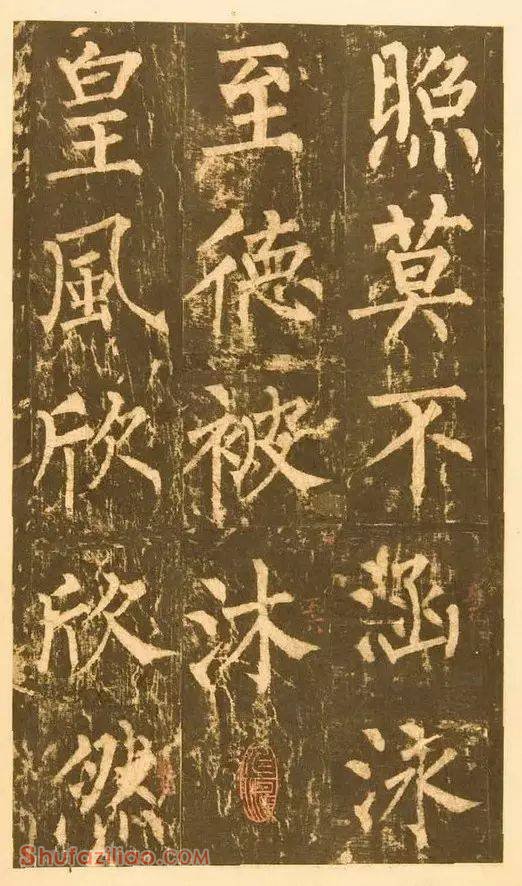 照莫不涵泳
至德被沐
皇風欣欣然
Shufaziliao.COM